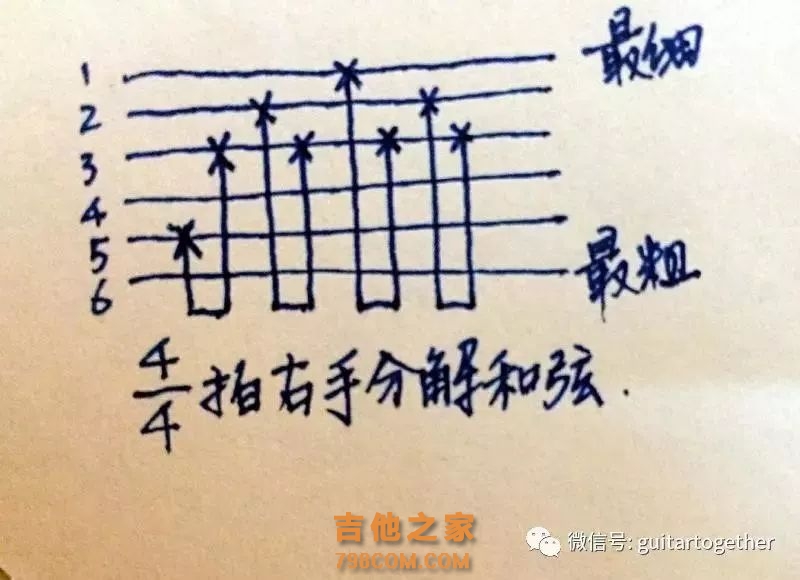 1
最细
2
3
4
5
6
最粗
4/4 拍右手分解和弦.
吉他之家
798COM.COM
微信号: guitartogether